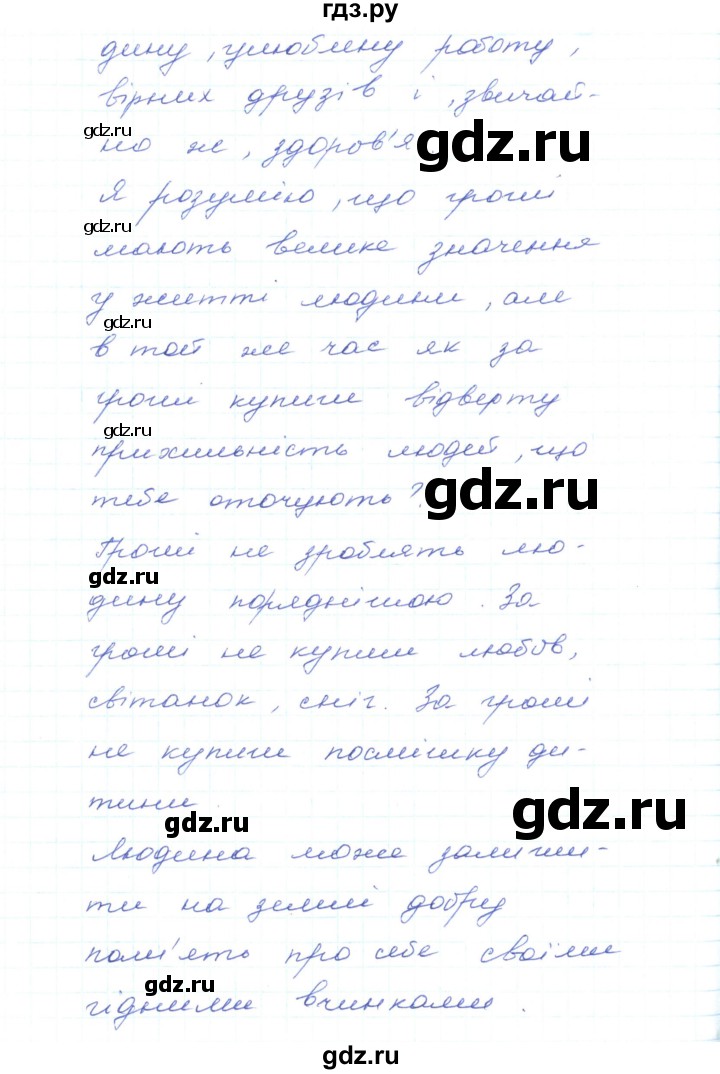 гдз.ру
дину, улюблену роботу,
вірних друзів і, звичай-
gdz.ru
но ж, здоров'я
gdz.ru
Я розумію, що гроші
gdz.ru
мають велике значення
у житті людини, але
gdz.ru
в той же час як за
гроші купиш відверту
gdz.ru
прихильність людей, що
тебе оточують?
gdz.ru
Гроші не зроблять лю-
gdz.ru
дину поряднішою. За
гроші не купиш любов,
світанок, сніг. За гроші
не купиш посмішку ди-
тини.
gdz.ru
gdz.ru
Людина може залиши-
ти на землі добру
пам'ять про себе своїми
gdz.ru
гідними вчинками.
gdz.ru